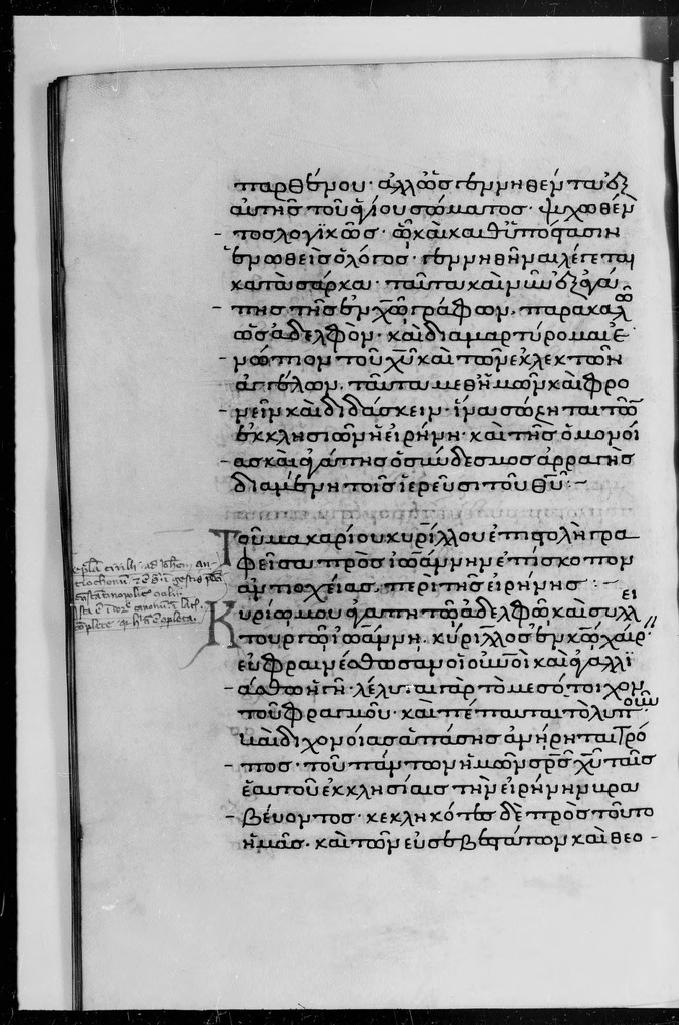 παρθένου· ἀλλ' ὡς γεννηθέντος ἐξ
αὐτῆς τοῦ ἁγίου σώματος· ψυχωθέν
τος λογικῶς· ᾧ καὶ καθ' ὑπόστασιν
ἑνωθεὶς ὁ λόγος· γεννηθῆναι λέγεται
κατὰ σάρκα· ταῦτα καὶ νῦν ἐξ ἀγά
πης τῆς ἐν χω γράφων, παρακαλ
ῶς ἀδελφὸν· καὶ διαμαρτύρομαι ἐ
νώπιον τοῦ χυ καὶ τῶν ἐκλεκτῶν
ἀγγέλων, ταῦτα μεθ' ἡμῶν καὶ φρο
νεῖν καὶ διδάσκειν· ἵνα σώζηται τῶν
ἐκκλησιῶν ἡ εἰρήνη· καὶ τῆς ὁμονοί
ας καὶ ἀγάπης ὁ σύνδεσμος ἀρραγὴς
διαμένη τοῖς ἱερεῦσι τοῦ θυ:~
Τοῦ μακαρίου κυρίλλου ἐπιστολὴ γρα
φεῖσα πρὸς ἰωάννην ἐπίσκοπον
ἀντιοχείας, περὶ τῆς εἰρήνης :~
Κυρίω μου ἀγαπητῶ ἀδελφῶ καὶ συλλει
τουργῶ ἰωάννη, κύριλλος ἐν κω χαίρ
εὐφραινέσθωσαν οἱ οὐνοὶ καὶ ἀγαλλι
άσθω ἡ γῆ· λέλυται γὰρ τὸ μεσότοιχον
τοῦ φραγμοῦ· καὶ πέπαυται τὸ λυποῦν
καὶ διχονοίας ἁπάσης ἀνήρηται τρό
πος· τοῦ πάντων ἡμῶν σρς χυ ταῖς
ἑαυτοῦ ἐκκλησίαις τὴν εἰρήνην βρα
βεύοντος· κεκληκότες δὲ πρὸς τοῦτο
ἡμᾶς· καὶ τῶν εὐσεβεστάτων καὶ θεο